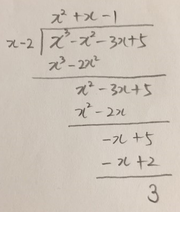 x² + x - 1
x - 2 √ x³ - x² - 3x + 5
x³ - 2x²
x² - 3x + 5
x² - 2x
-x + 5
-x + 2
3